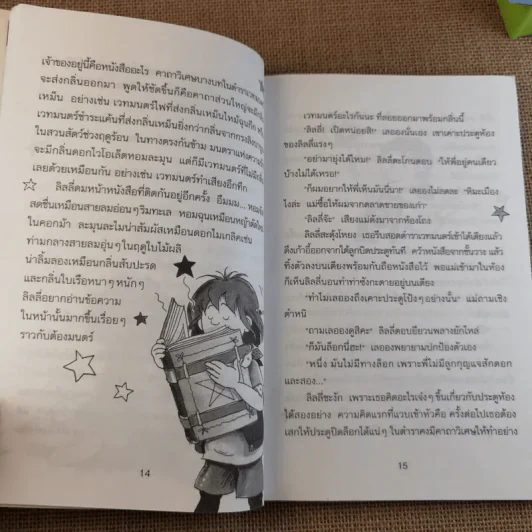 เจ้าของอยู่นี้คือหนังสืออะไร คาถาวิเศษบางบทในตำราเวทมนตร์
จะส่งกลิ่นออกมา พูดให้ชัดขึ้นก็คือคาถาส่วนใหญ่จะมีกลิ่น
เหม็น อย่างเช่น เวทมนตร์ไฟที่ส่งกลิ่นเหม็นไหม้ฉุนกึก
เวทมนตร์ชำระแค้นที่ส่งกลิ่นเหม็นยิ่งกว่ากลิ่นจากกรงลิง
ในสวนสัตว์ช่วงฤดูร้อน ในทางตรงกันข้าม มนตราแห่งความ
จะมีกลิ่นดอกไวโอเล็ตหอมละมุน แต่ก็มีเวทมนตร์ที่ไม่มีกลิ่น
เลยด้วยเหมือนกัน อย่างเช่น เวทมนตร์ทำเสียงอีกทึก
ลิลลี่ดมหน้าหนังสือที่ติดกันอยู่อีกครั้ง อืมมม...
สดชื่นเหมือนสายลมอ่อนๆ ริมทะเล หอมฉุนเหมือนหญ้าตัดใหม่
ในคอกม้า ละมุนละไมน่าสัมผัสเหมือนดอกไมเกลิคเช่น
ท่ามกลางสายลมอุ่นๆ ในฤดูใบไม้ผลิ
น่าลิ้มลองเหมือนกลิ่นสับปะรด
และกลิ่นใบเรือหนาๆ หนักๆ
ลิลลี่อยากอ่านข้อความ
ในหน้านั้นมากขึ้นเรื่อยๆ
ราวกับต้องมนตร์
14
เวทมนตร์อะไรกันนะ ที่ลอยออกมาพร้อมกลิ่นนี้
"ลิลลี่! เปิดหน่อยสิ!" เลอองนั่นเอง เขาเคาะประตูห้อง
ของลิลลี่แรงๆ
"อย่ามายุ่งได้ไหม!" ลิลลี่ตะโกนตอบ "ให้พี่อยู่คนเดียว
บ้างไม่ได้เหรอ!"
"ก็ผมอยากให้พี่เห็นมันนี่นา!" เลอองไม่ลดละ "หิมะเมือง
ไงล่ะ แม่ซื้อให้ผมจากตลาดขายของเก่า"
"ลิลลี่จ๊ะ" เสียงแม่ดังมาจากห้องโถง
ลิลลี่สะดุ้งโหยง เธอรีบสอดตำราเวทมนตร์เข้าใต้เตียงแล้ว
ดึงเก้าอี้ออกจากใต้ลูกบิดประตูทันที คว้าหนังสือจากชั้นวาง แล้ว
ทิ้งตัวลงบนเตียงพร้อมกับถือหนังสือไว้ พอแม่เข้ามาในห้อง
ก็เห็นลิลลี่นอนทำท่าขังกะตายอยู่บนเตียง
"ทำไมเลอองถึงเคาะประตูโป้งๆ อย่างนั้น" แม่ถามเชิง
ตำหนิ
"ถามเลอองดูสิคะ" ลิลลี่ตอบยียวนพลางยักไหล่
"ก็มันล็อกนี่ฮะ!" เลอองพยายามปกป้องตัวเอง
"หนึ่ง มันไม่มีทางล็อก เพราะพี่ไม่มีลูกกุญแจสักดอก
และสอง..."
ลิลลี่ชะงัก เพราะเธอคิดอะไรเจ๋งๆ ขึ้นเกี่ยวกับประตูห้อง
ได้สองอย่าง ความคิดแรกที่แวบเข้าหัวคือ ครั้งต่อไปเธอต้อง
เสกให้ประตูปิดล็อกได้แน่ๆ ในตำราคงมีคาถาวิเศษให้ทำอย่าง
15